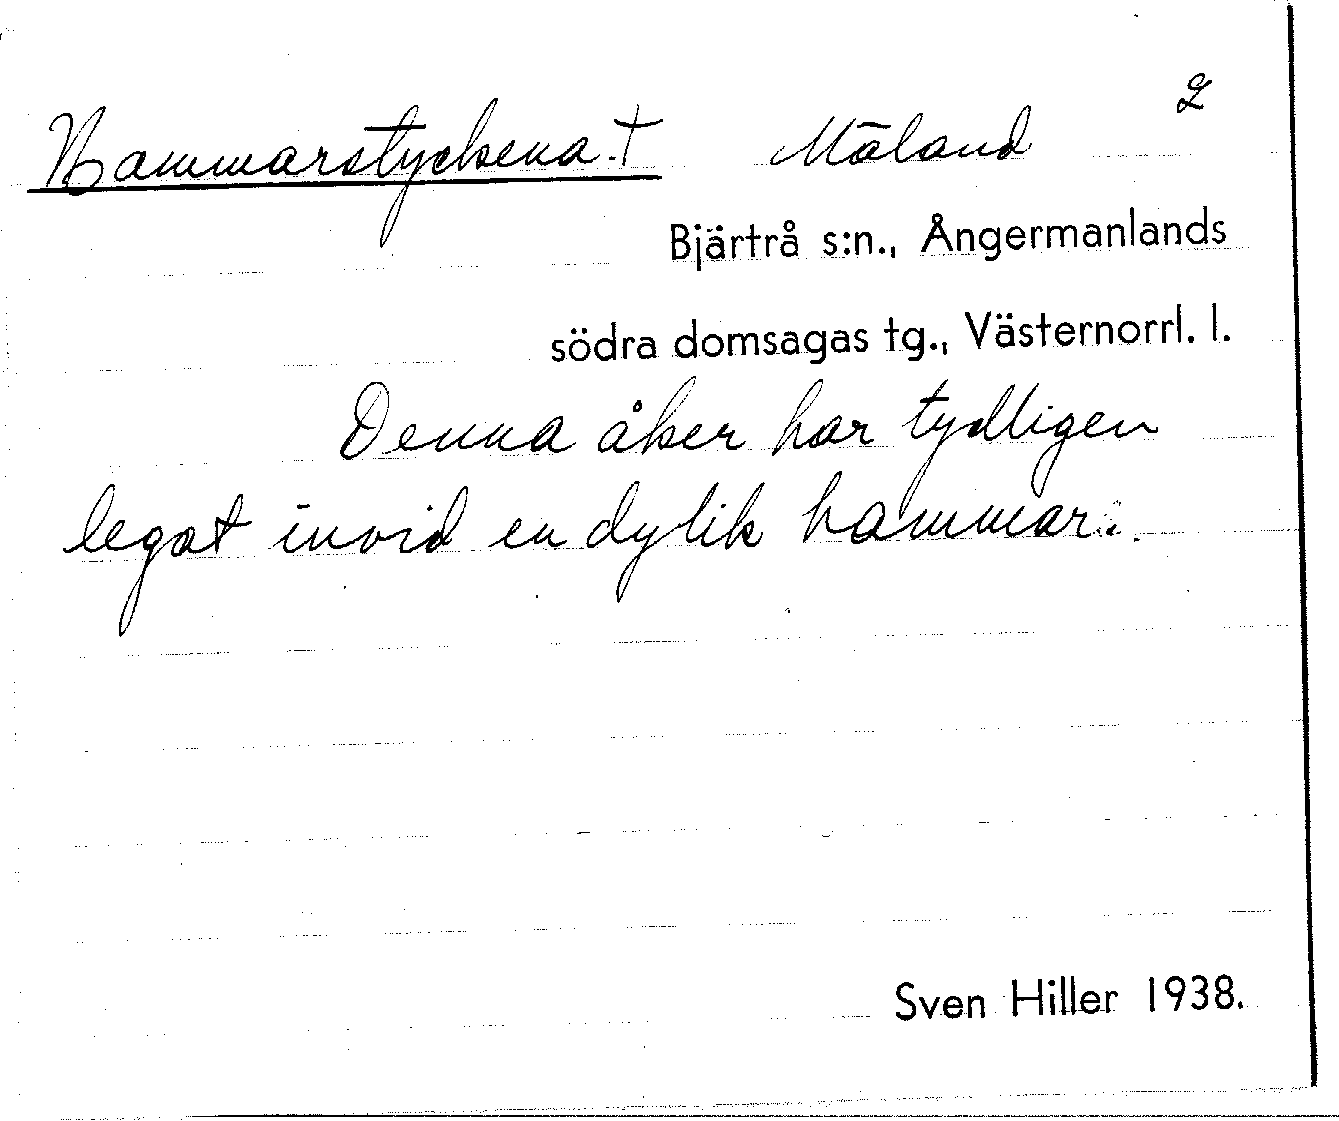 Hammarstyckena. † Mäland 2
Bjärtrå s:n., Ångermanlands
södra domsagas tg., Västernorrl. l.
Denna åker har tydligen
legat invid en dylik hammar.
Sven Hiller 1938.